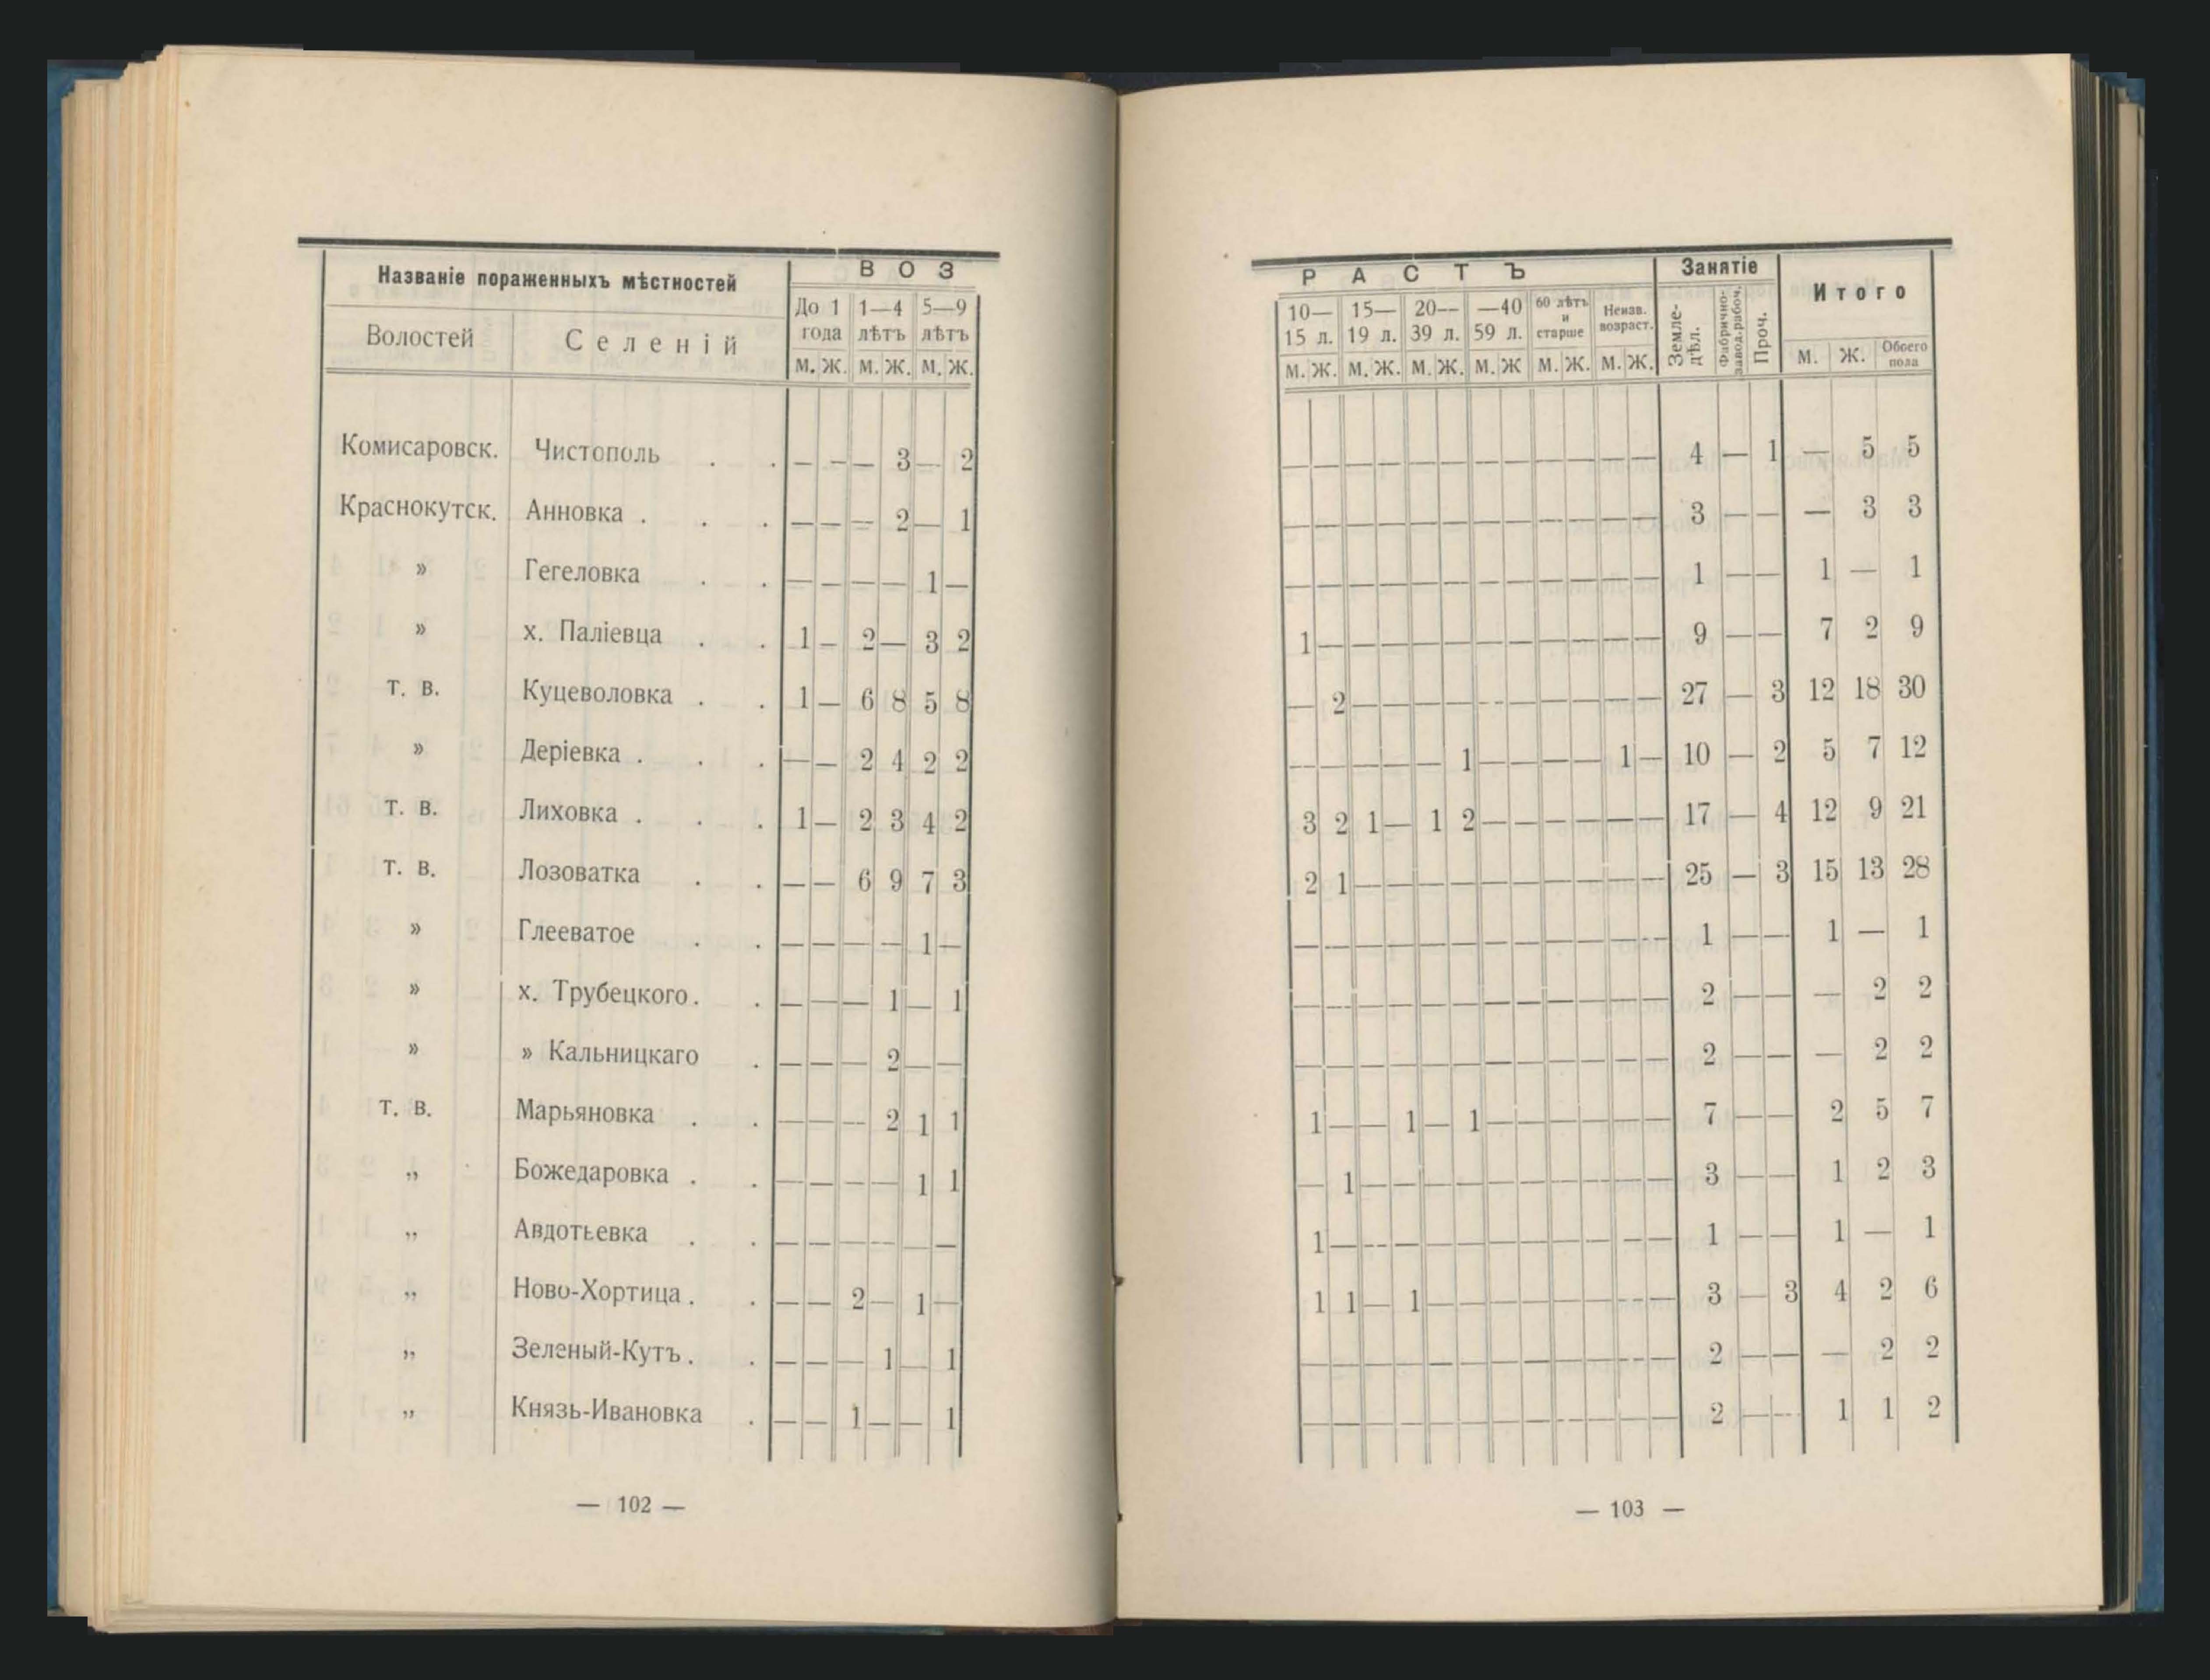 Названіе пораженныхъ мѣстностей
Волостей Селеній
ВОЗ
До 1 года 1—4 лѣтъ 5—9 лѣтъ
м. Ж. м. Ж. м. Ж.
Комисаровск. Чистополь . . — — — 3 — 2
Краснокутск. Анновка . . . — — — 2 — 1
» Гегеловка . . — — — — 1 —
» х. Паліевца . . 1 — 2 — 3 2
т. в. Куцеволовка . . 1 — 6 8 5 8
» Деріевка . . . — — 2 4 2 2
т. в. Лиховка . . . 1 — 2 3 4 2
т. в. Лозоватка . . — — 6 9 7 3
» Глееватое . . — — — — 1 —
» х. Трубецкого . . — — — 1 — 1
» » Кальницкаго . — — — 2 — —
т. в. Марьяновка . . — — — 2 1 1
„ Божедаровка . . — — — — 1 1
„ Авдотьевка . . — — — — — —
„ Ново-Хортица . . — — 2 — 1 —
„ Зеленый-Кутъ . . — — — 1 — 1
„ Князь-Ивановка . — — 1 — — 1
— 102 —
РАСТЪ
Занятіе
Итого
10—15 л. 15—19 л. 20—39 л. —40 59 л. 60 лѣтъ и старше Неизв. возраст. Земле-дѣл. Фабрично-завод.рабоч. Проч. м. Ж. Обоего пола
м. Ж. м. Ж. м. Ж. м. Ж м. Ж. м. Ж.
— — — — — — — — — — — — 4 — 1 — 5 5
— — — — — — — — — — — — 3 — — — 3 3
— — — — — — — — — — — — 1 — — 1 — 1
1 — — — — — — — — — — — 9 — — 7 2 9
— 2 — — — — — — — — — — 27 — 3 12 18 30
— — — — — 1 — — — — 1 — 10 — 2 5 7 12
3 2 1 — 1 2 — — — — — — 17 — 4 12 9 21
2 1 — — — — — — — — — — 25 — 3 15 13 28
— — — — — — — — — — — — 1 — — 1 — 1
— — — — — — — — — — — — 2 — — — 2 2
— — — — — — — — — — — — 2 — — — 2 2
1 — — 1 — 1 — — — — — — 7 — — 2 5 7
— 1 — — — — — — — — — — 3 — — 1 2 3
1 — — — — — — — — — — — 1 — — 1 — 1
1 1 — 1 — — — — — — — — 3 — 3 4 2 6
— — — — — — — — — — — — 2 — — — 2 2
— — — — — — — — — — — — 2 — — 1 1 2
— 103 —